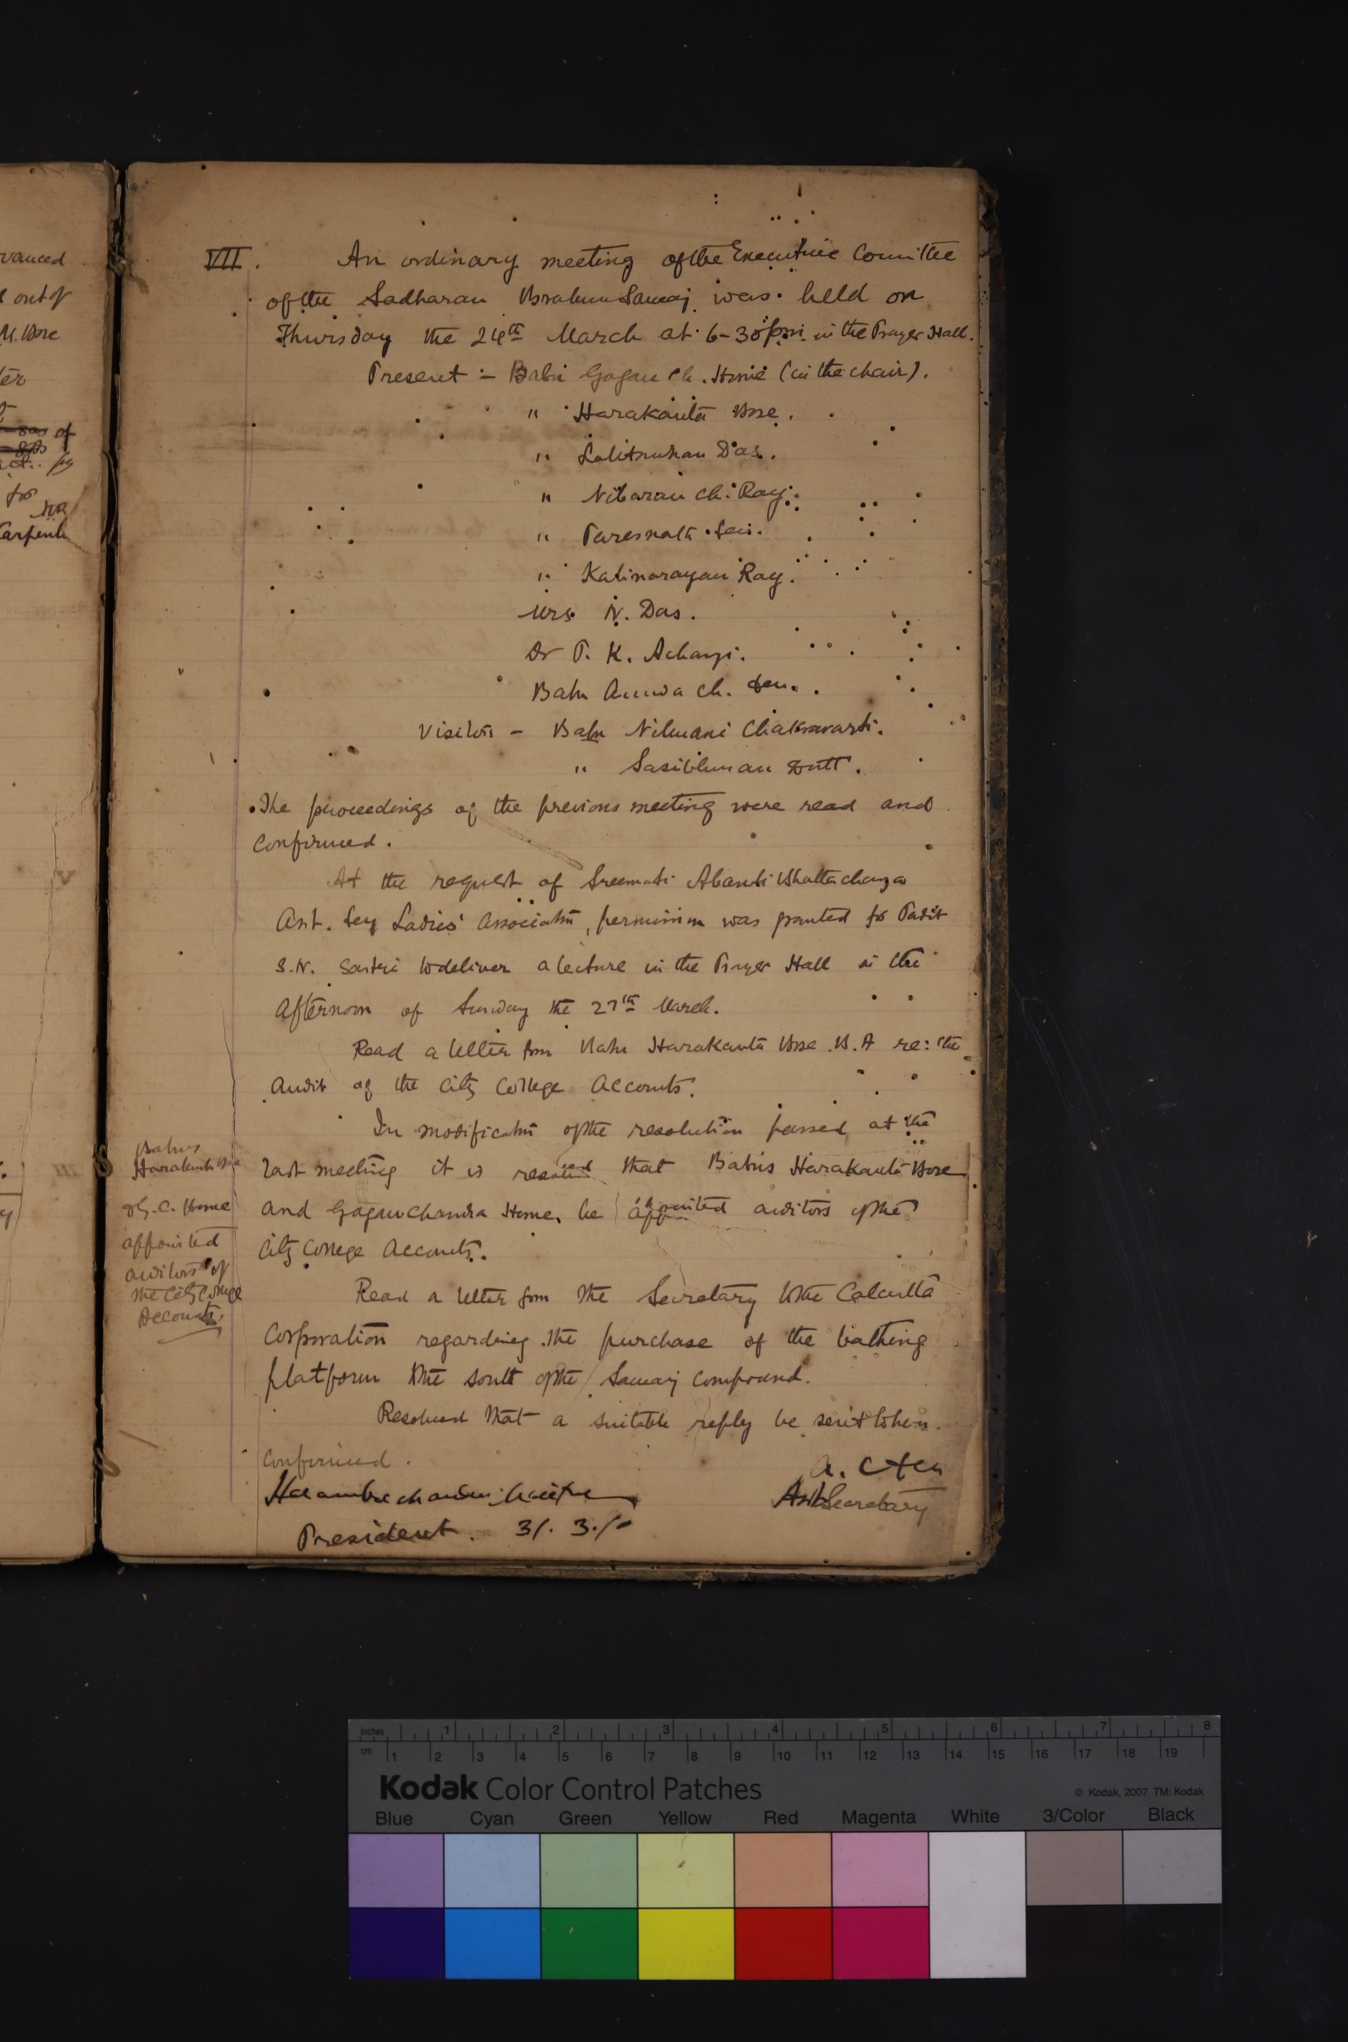 vanced
out of
M. Bose
for
Carpente
VII. An ordinary meeting of the Executive Committee
of the Sadharan Brahmo Samaj was held on
Thursday the 24th March at 6-30 p.m. in the Prayer Hall.
Present :- Babu Gagan Ch. Home (in the chair).
" Harakanta Bose.
" Lalitmohan Das.
" Nibaran Ch. Ray.
" Paresnath Sen.
" Kalinarayan Ray.
Mrs. N. Das.
Dr P. K. Acharji.
Babu Annoda Ch. Sen.
Visitors - Babu Nilmani Chakravarti.
" Sasibhusan Dutt.
The proceedings of the previous meeting were read and
confirmed.
At the request of Sreemati Abanti Bhattacharya
Asst. Secy Ladies' Association, permission was granted to Pandit
S.N. Sastri to deliver a lecture in the Prayer Hall in the
afternoon of Sunday the 27th March.
Read a letter from Babu Harakanta Bose B.A re: the
audit of the City College Accounts.
In modification of the resolution passed at the
last meeting it is resolved that Babus Harakanta Bose
and Gaganchandra Home, be appointed auditors of the
City College Accounts.
Babus
Harakanta Bose
& G. C. Home
appointed
auditors of
the City College
Accounts.
Read a letter from the Secretary to the Calcutta
Corporation regarding the purchase of the bathing
platform to the south of the Samaj compound.
Resolved that a suitable reply be sent to him.
Confirmed.
A. C. Sen
Asst Secretary
Herambachandra Maitra
President. 31. 3. 10
inches 1 2 3 4 5 6 7 8
cm 1 2 3 4 5 6 7 8 9 10 11 12 13 14 15 16 17 18 19
Kodak Color Control Patches
© Kodak, 2007 TM: Kodak
Blue Cyan Green Yellow Red Magenta White 3/Color Black